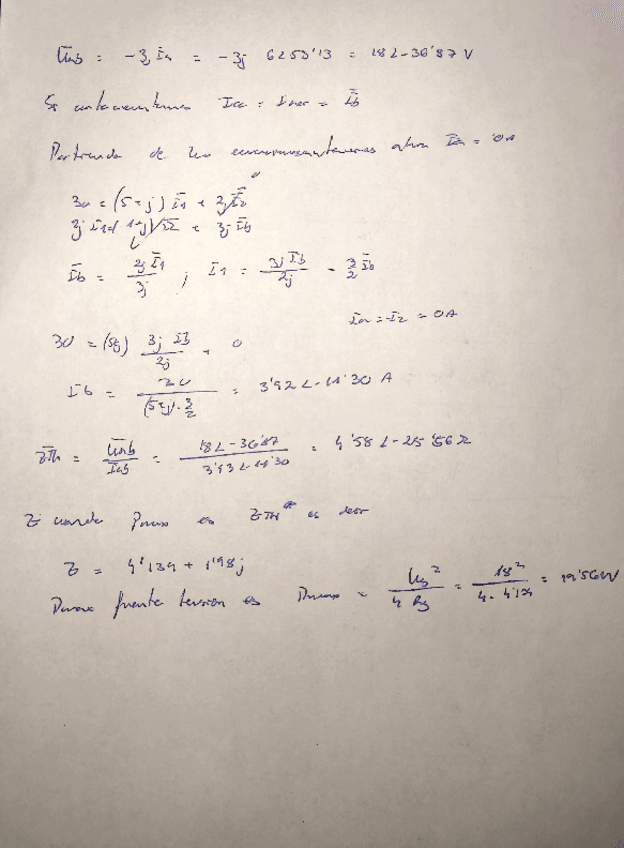 Uab = -3j Ia = -3j 6∠53'13 = 18∠-36'87 V
Icc = Inor = Ib
Partiendo de las ahora Ia = 0A
30 = (5+j) I1 + 2j I2 0
3j I1 = (1+j) I2 + 3j Ib
Ib = 2j I1 / 3j ; I1 = 3j Ib / 2j = 3/2 Ib
Ia = I2 = 0A
30 = (5+j) 3j Ib / 2j + 0
Ib = 30 / (5+j)·3/2 = 3'92∠-11'30 A
ZTh = Uab / Iab = 18∠-36'87 / 3'93∠-11'30 = 4'58∠-25'56 Ω
Z cuando Pmax es ZTH* es decir
Z = 4'134 + 1'98j
Pmax fuente tension es Pmax = Ug² / 4 Rg = 18² / 4·4'134 = 19'56W